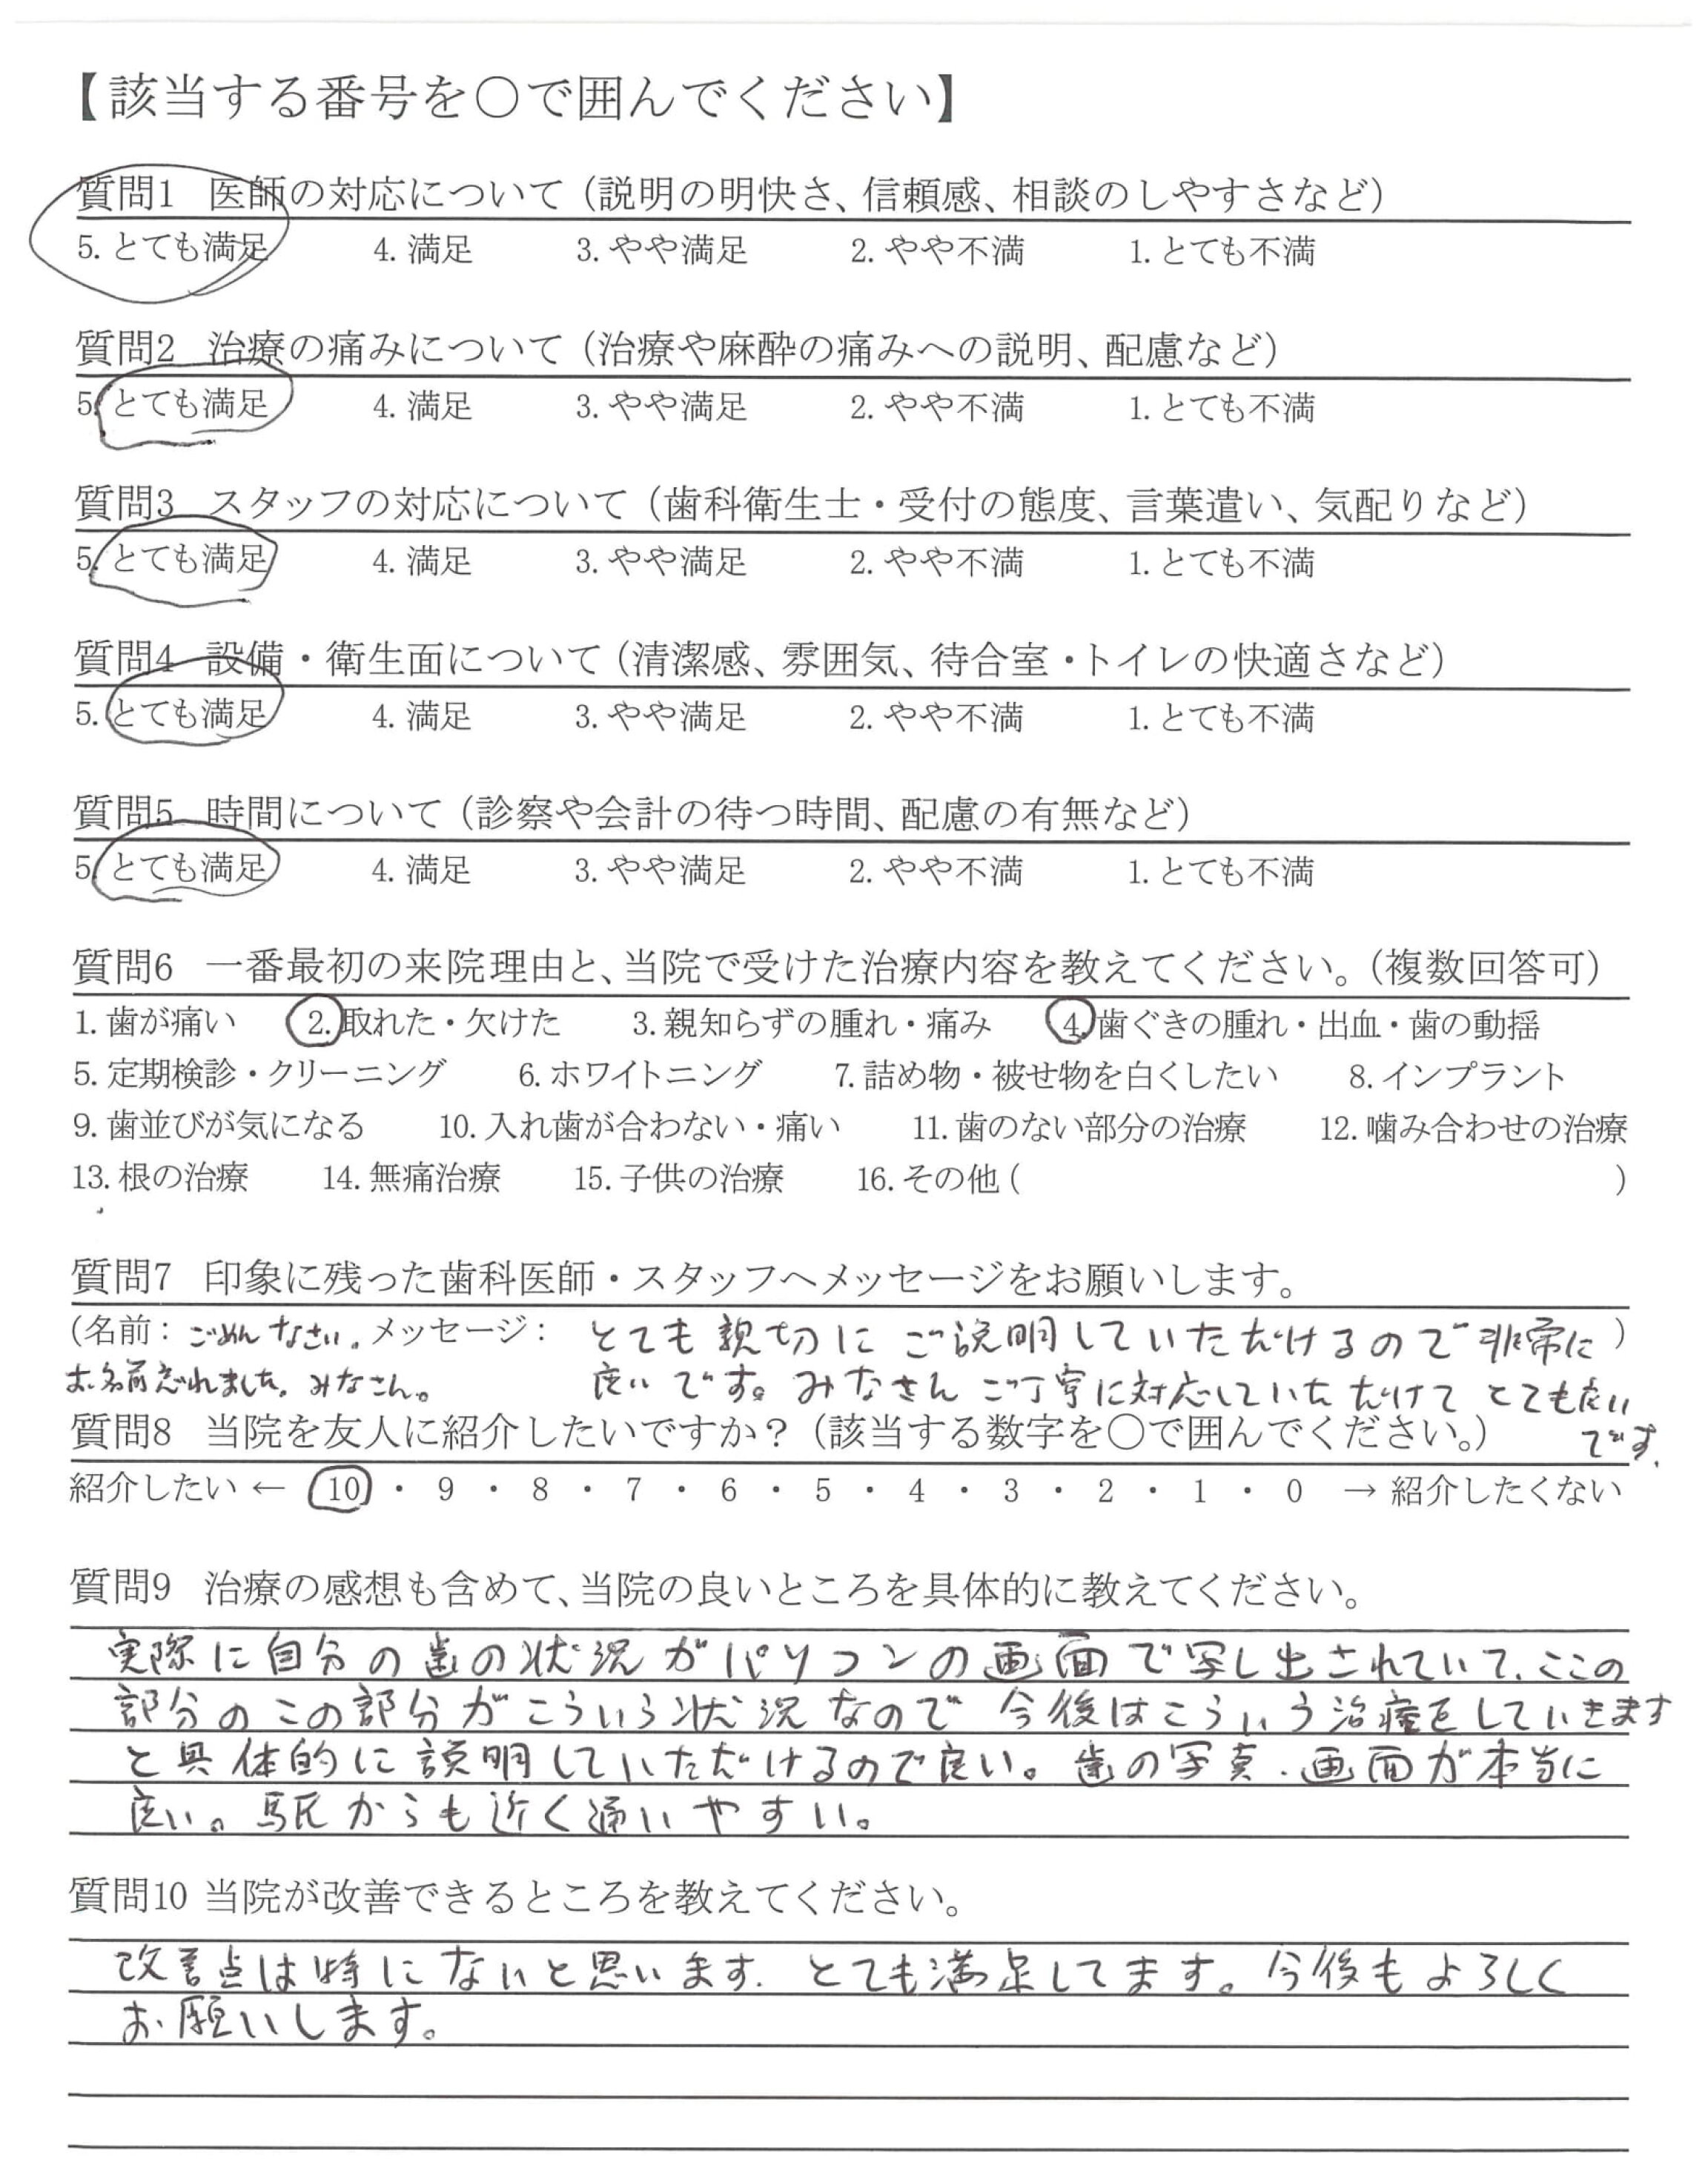 【該当する番号を〇で囲んでください】
質問1 医師の対応について（説明の明快さ、信頼感、相談のしやすさなど）
5. とても満足 4. 満足 3. やや満足 2. やや不満 1. とても不満
質問2 治療の痛みについて（治療や麻酔の痛みへの説明、配慮など）
5. とても満足 4. 満足 3. やや満足 2. やや不満 1. とても不満
質問3 スタッフの対応について（歯科衛生士・受付の態度、言葉遣い、気配りなど）
5. とても満足 4. 満足 3. やや満足 2. やや不満 1. とても不満
質問4 設備・衛生面について（清潔感、雰囲気、待合室・トイレの快適さなど）
5. とても満足 4. 満足 3. やや満足 2. やや不満 1. とても不満
質問5 時間について（診察や会計の待つ時間、配慮の有無など）
5. とても満足 4. 満足 3. やや満足 2. やや不満 1. とても不満
質問6 一番最初の来院理由と、当院で受けた治療内容を教えてください。（複数回答可）
1. 歯が痛い 2. 取れた・欠けた 3. 親知らずの腫れ・痛み 4. 歯ぐきの腫れ・出血・歯の動揺
5. 定期検診・クリーニング 6. ホワイトニング 7. 詰め物・被せ物を白くしたい 8. インプラント
9. 歯並びが気になる 10. 入れ歯が合わない・痛い 11. 歯のない部分の治療 12. 噛み合わせの治療
13. 根の治療 14. 無痛治療 15. 子供の治療 16. その他（ ）
質問7 印象に残った歯科医師・スタッフへメッセージをお願いします。
（名前：ごめんなさい。メッセージ： とても親切にご説明していただけるので非常に）
お名前忘れました。みなさん。 良いです。みなさんご丁寧に対応していただけてとても良い
です。
質問8 当院を友人に紹介したいですか？（該当する数字を〇で囲んでください。）
紹介したい ← 10 ・ 9 ・ 8 ・ 7 ・ 6 ・ 5 ・ 4 ・ 3 ・ 2 ・ 1 ・ 0 → 紹介したくない
質問9 治療の感想も含めて、当院の良いところを具体的に教えてください。
実際に自分の歯の状況がパソコンの画面で写し出されていて、ここの
部分のこの部分がこういう状況なので今後はこういう治療をしていきます
と具体的に説明していただけるので良い。歯の写真、画面が本当に
良い。駅からも近く通いやすい。
質問10 当院が改善できるところを教えてください。
改善点は特にないと思います。とても満足してます。今後もよろしく
お願いします。